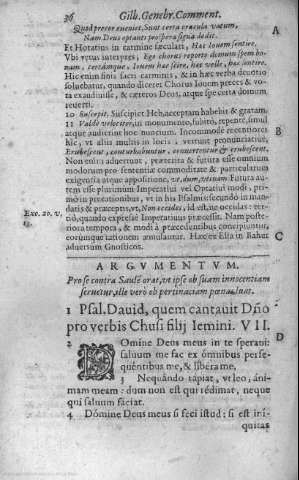 36 Gilb. Genebr. Comment.
Quod preter euenit. Sunt certa oracula vatum,
Nam Deus optanti prospera signa dedit.
A
Et Horatius in carmine sæculari, Hac Iouem sentire,
Vbi vetus interpres, Ego chorus reporto domum spem bo-
nam, certamque, Iouem hac sentire, hac velle, hac sancire.
Hic enim finis sacri carminis, & in hæc verba deuotio
soluebatur, quando diceret Chorus Iouem preces & vo-
ta exaudiisse, & cæteros Deos, atque spe certa domum
reuerti.
10 Suscepit. Suscipiet Heb. acceptam habebit & gratam.
11 Valde velociter, in monumento, subito, repente, simul
atque audierint hoc nuncium. Incommode recentiores
B
hic, vt aliis multis in locis, vertunt pronuntiatiue,
Erubescent, conturbabuntur, conuertentur & erubescent.
Non enim aduertunt, præterita & futura esse omnium
modorum pro sententiæ commoditate & particularum
exigentia atque appositione, vt, dum, vtinam. Futura au-
tem esse plurimum Imperatiui vel Optatiui modi, pri-
mo in precationibus, vt in his Psalmis: secundo in man-
datis & præceptis, vt, Non occides, id est, ne occidas: ter-
Exo. 20. v.
13.
tiò, quando expresse Imperatiuus præcessit. Nam poste-
riora tempora, & modi à præcedentibus concipiuntur,
C
eorúmque rationem æmulantur. Hæc ex Elia in Bahur
aduersum Gnosticos.
ARGVMENTVM.
Pro se contra Saulē orat, in ipse ob suam innocentiam
seruetur, ille verò ob pertinaciam pœnas luat.
1 Psal. Dauid, quem cantauit Dño
pro verbis Chusi filij Iemini. VII.
D
2 Domine Deus meus in te speraui:
saluum me fac ex ómnibus perse-
quéntibus me, & líbera me.
3 Nequándo rápiat, vt leo, áni-
mam meam: dum non est qui rédimat, neque
qui saluum fáciat.
4 Dómine Deus meus si feci istud: si est iní-
quitas